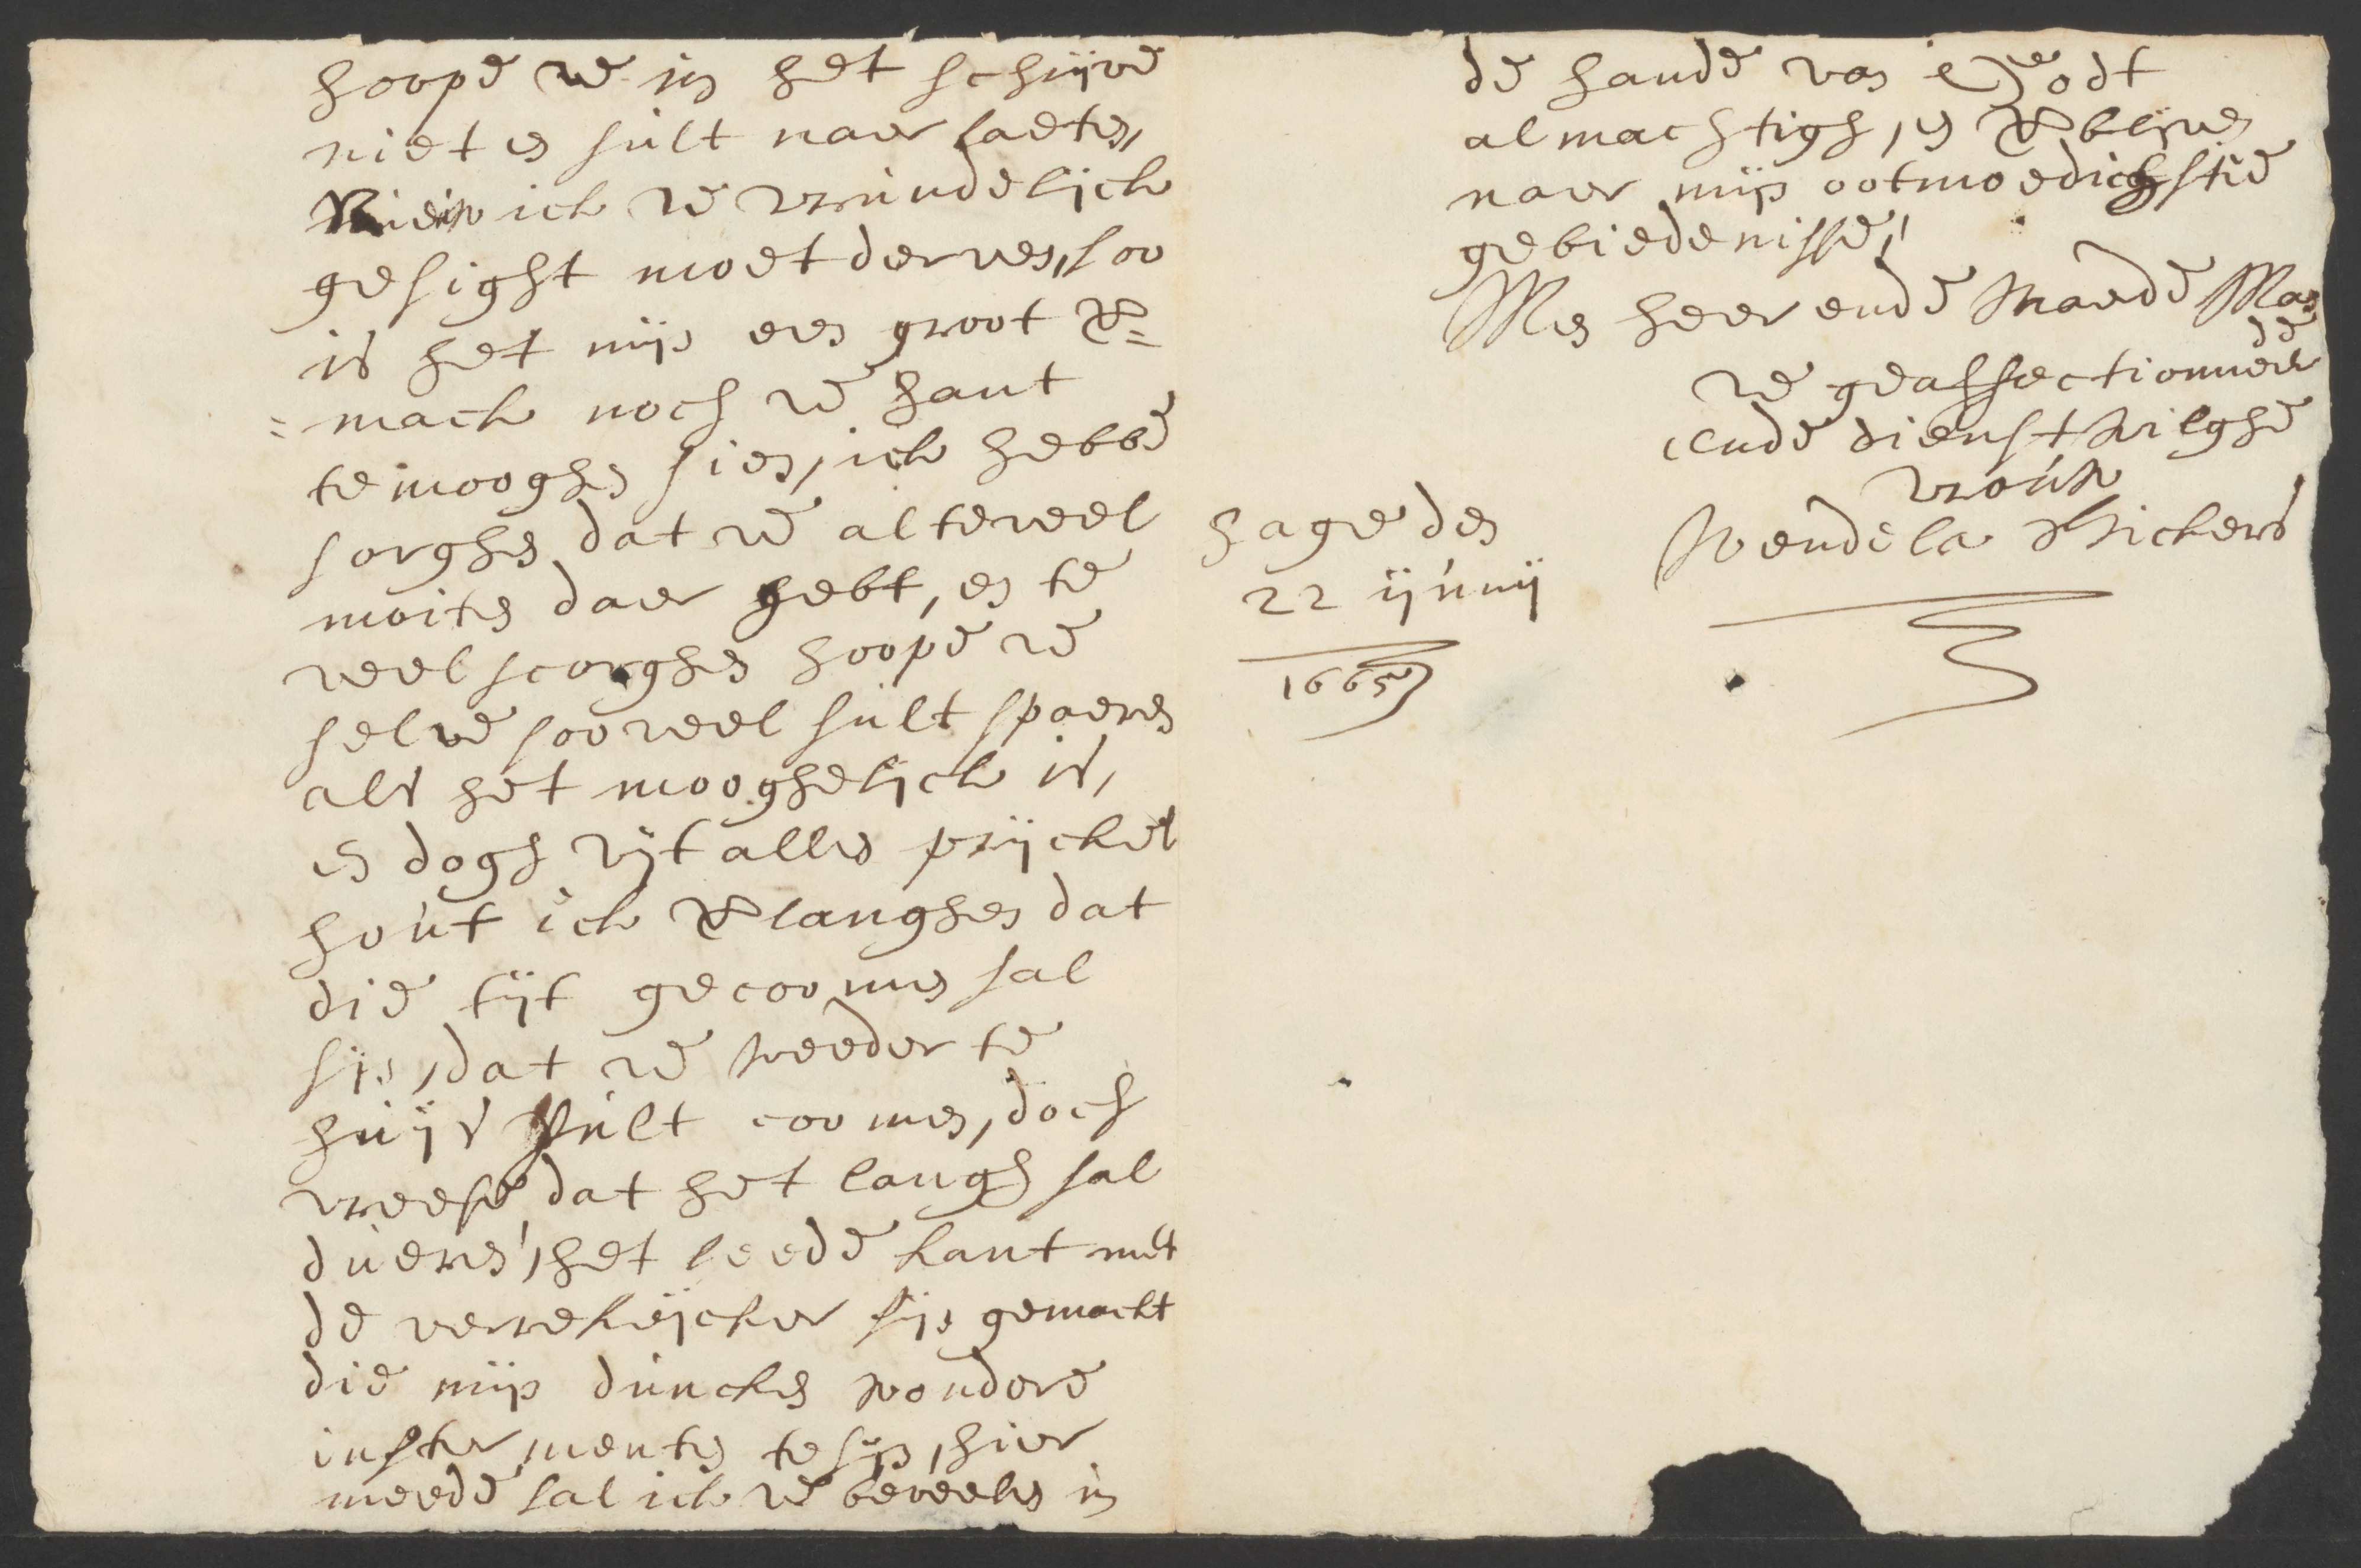 hoope ue in het schrijve
niet en sult naer laeten,
Nu ick ue vrindelijck
gesight moet derven, soo
is het mijn een groot ver=
=mack noch ue hant
te mooghen sien, ick hebbe
sorghen dat ue al te veel
moiten daer hebt, en te
veel scorghen hoope ue
selve soo veel sult spaeren
als het mooghelijck is,
en dogh uijt alles prijckel
hout ick verlanghen dat
die tijt gecoomen sal
sijn, dat ue weeder te
huijs sult coomen, doch
vreese dat het langh sal
dueren, het leede kant met
de verrekijcker sijn gemackt
die mijn duncken wondere
instermenten te sijn, hier
meede sal ick ue beveelen in
de hande van Godt
almachtigh, en verblijven
naer mijn ootmoedichstie
gebiedenisse,
Men heer ende Waerde Man
ue geaffectionneerde
ende dienst wilghe
vrouw
Wendela Bickers
hage den
22 ijunij
1665